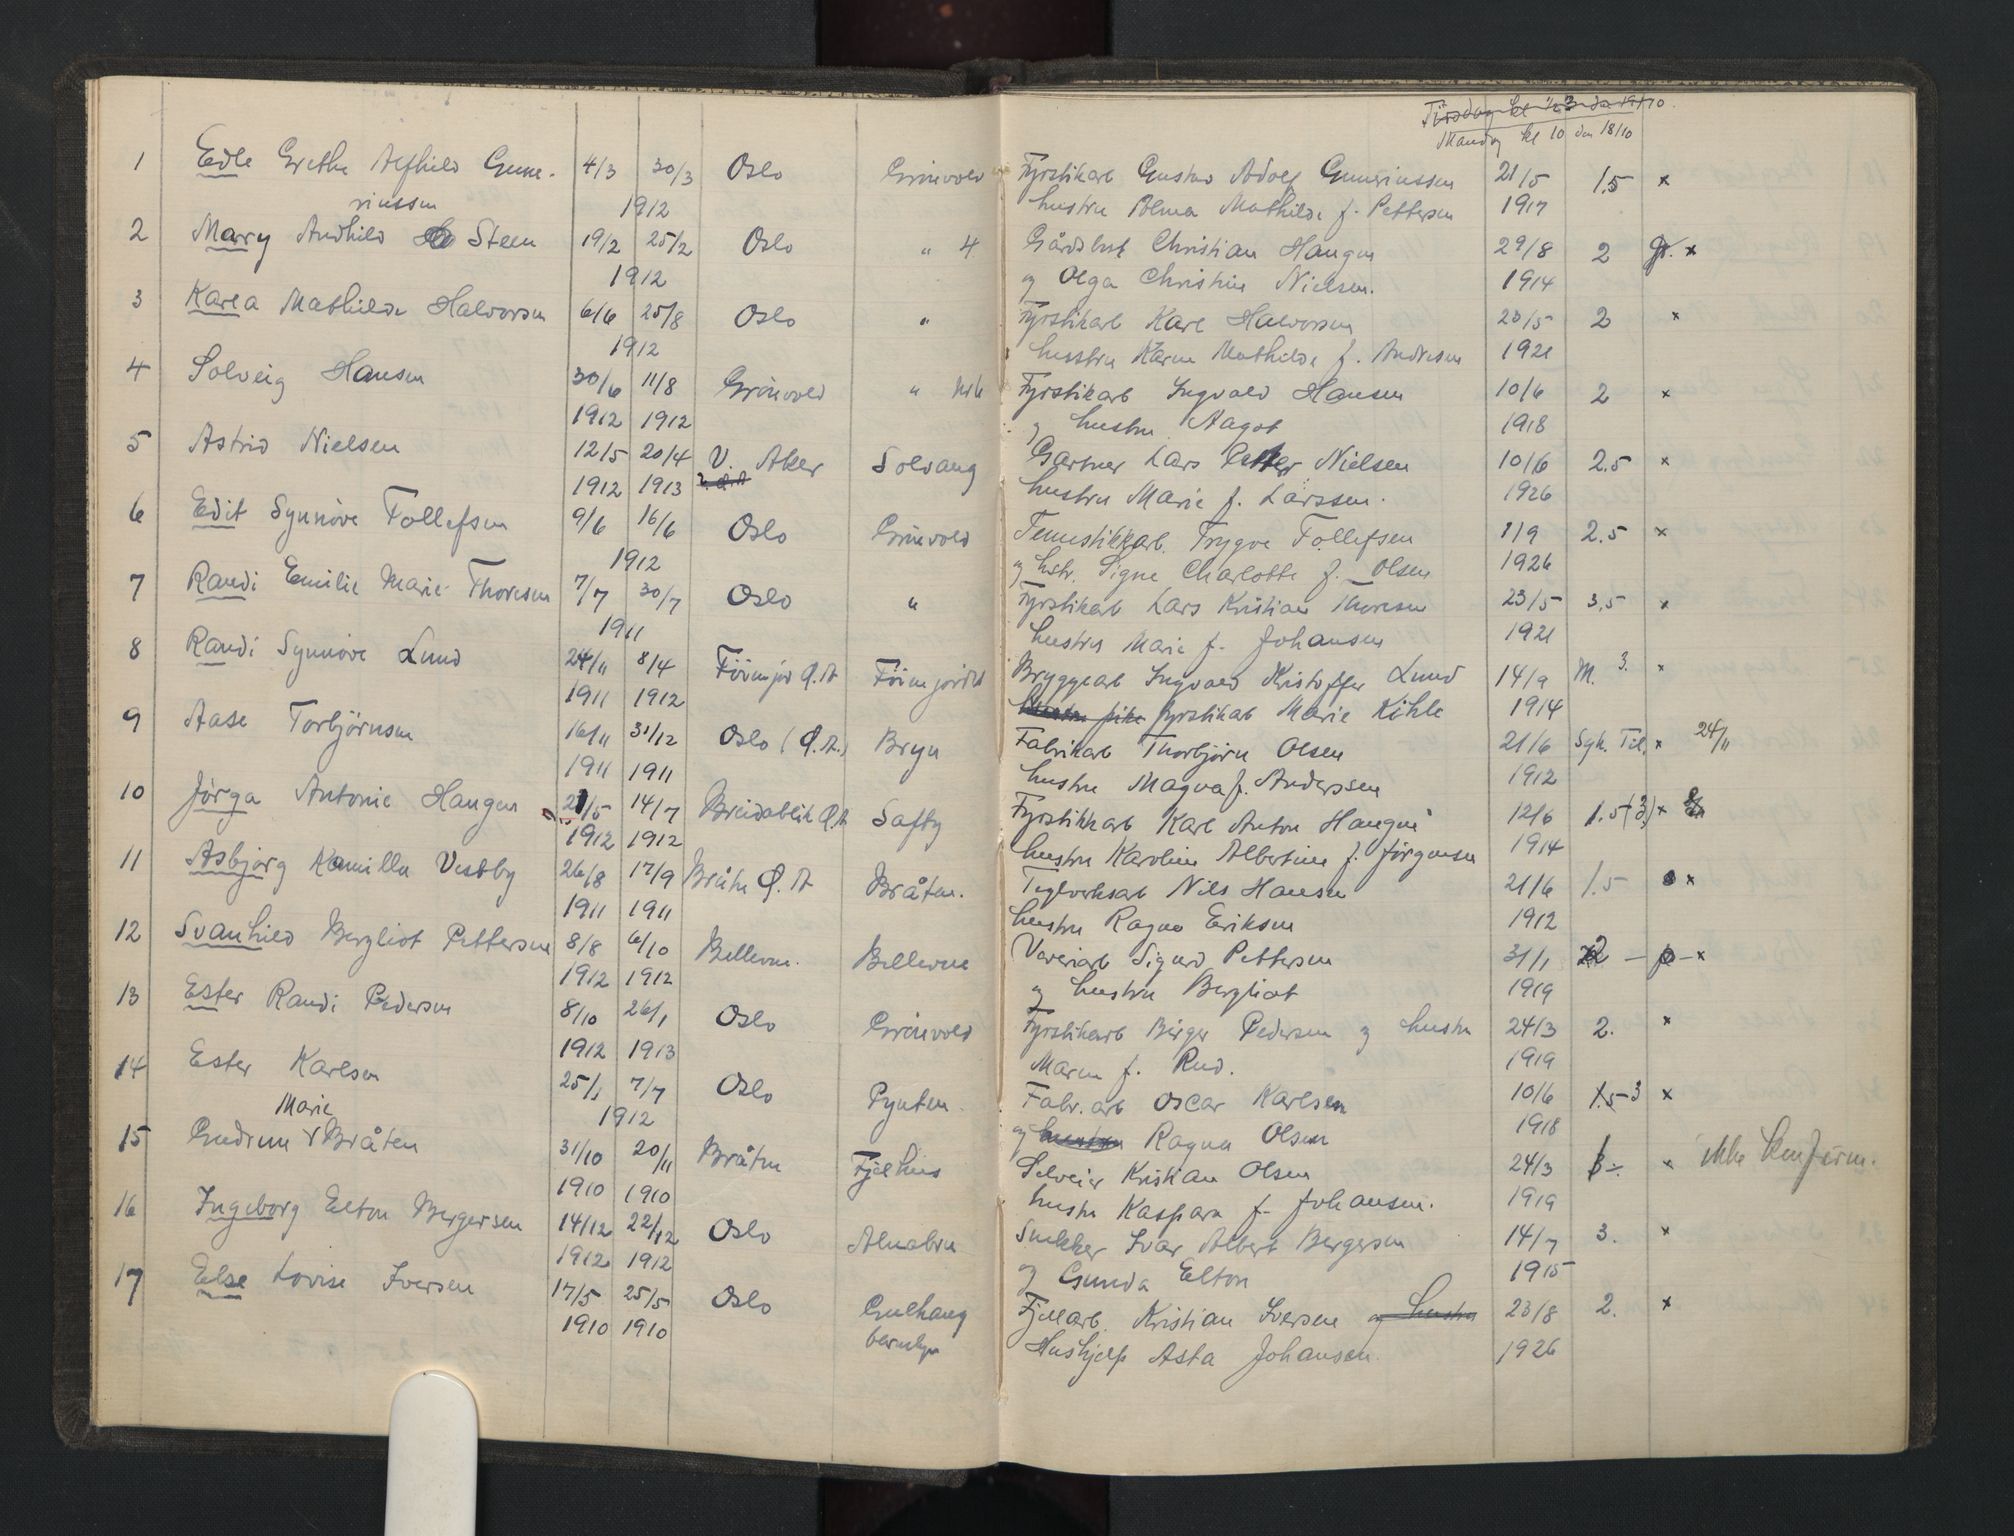 Mandag kl 10 den 18/10
1 Edle Grethe Alfhild Gune- 4/3 30/3 Oslo Grönvold Fyrstikarb Gustav Adolf Guneriussen 21/5 1.5 x
riussen 1912 hustru Alma Mathilde f. Pettersen 1917
2 Mary Andhild Steen 19/2 25/2 Oslo " 4 Christian Haugen 29/8 2 x
1912 og Olga Christine Nielsen. 1914
3 Karla Mathilde Halvorsen 6/6 25/8 Oslo " Fyrstikarb Karl Halvorsen 23/5 2 x
1912 hustru Karen Mathilde f. Andresen 1921
4 Solveig Hansen 30/6 11/8 Grönvold " Fyrstikarb Ingvald Hansen 10/6 2 x
1912 1912 og hustru Aagot 1918
5 Astrid Nielsen 12/5 20/4 V. Aker Solvang Gartner Lars Petter Nielsen 10/6 2.5 x
1912 1913 hustru Marie f. Larssen. 1926
6 Edit Synnöve Tollefsen 9/6 16/6 Oslo Grönvold Trygve Tollefsen 1/9 2.5 x
1912 og hstr. Signe Charlotte f. Olsen 1926
7 Randi Emilie Marie Thoresen 7/7 30/7 Oslo " Fyrstikarb Lars Kristian Thoresen 23/5 3.5 x
1911 hustru Marie f. Johansen 1921
8 Randi Synnöve Lund 24/11 8/4 Ö.A Bryggearb Ingvald Kristoffer Lund 14/9 M. 3. x
1911 1912 fyrstikarb Marie Kihle 1914
9 Aase Torbjörnsen 16/11 31/12 Oslo (Ö.A.) Bryn Fabrikarb Thorbjörn Olsen 21/6 x 24/11
1911 1911 hustru Magna f. Anderssen 1912
10 Jörga Antonie Haugen 21/5 14/7 Breidablik Ö.A Fyrstikkarb Karl Anton Haugen 12/6 1.5 (3) x
1912 1912 hustru Karoline Albertine f. Jörgensen 1914
11 Asbjörg Kamilla Vestby 26/8 17/9 Bråten Ö.A Bråten. Teglverksarb Nils Hansen 21/6 1.5 x
1911 1911 hustru Ragna Eriksen 1912
12 Svanhild Bergliot Pettersen 8/8 6/10 Bellevue. Bellevue Veveriarb Sigurd Pettersen 31/1 2 - x
1912 1912 og hustru Bergliot 1919
13 Ester Randi Pedersen 8/10 26/1 Oslo Grönvold Fyrstikarb Birger Pedersen og hustru 24/3 2. x
1912 1913 Maren f. Rud. 1919
14 Ester Karlsen 25/1 7/7 Oslo Pynten Fabr.arb Oscar Karlsen 10/6 1.5-3 x
Marie 1912 og Ragna Olsen 1918
15 Gudrun Bråten 31/10 20/11 Bråten Fjelhus Selveier Kristian Olsen 24/3 x ikke konfirm.
1910 1910 hustru Kaspara f. Johansen. 1919
16 Ingeborg Elton Bergersen 14/12 22/12 Oslo Alnabru Snekker Ivar Albert Bergersen 14/7 3. x
1912 1912 og Gunda Elton 1915
17 Else Lovise Iversen 17/5 25/5 Oslo Gulhaug Fjellarb. Kristian Iversen og hustru 23/8 2. x
1910 1910 Hushjelp Asta Johansen. 1926